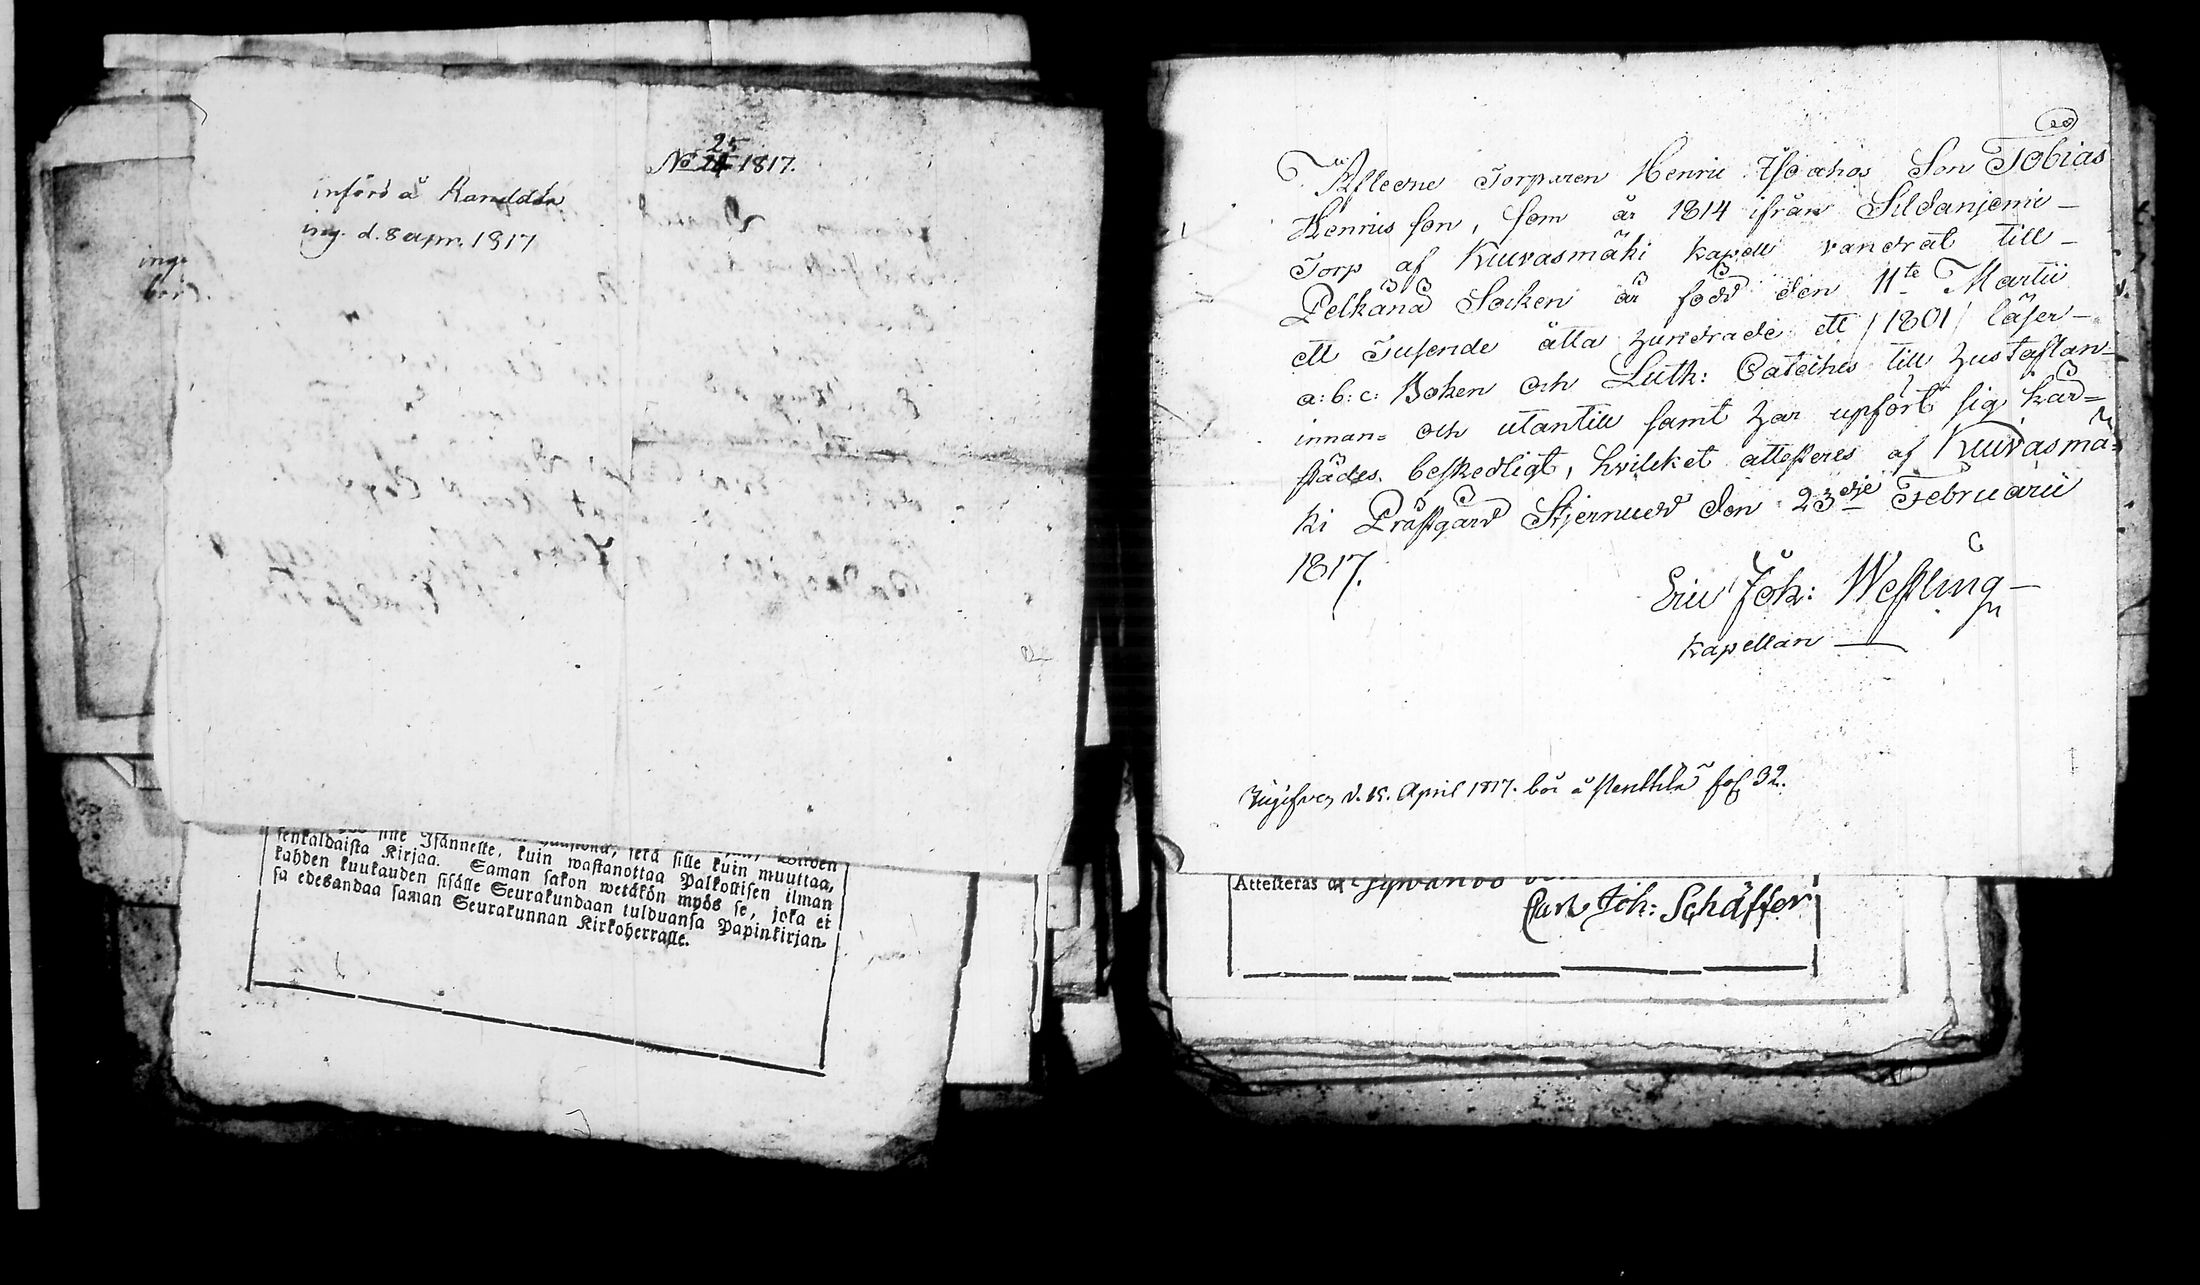 No 25 1817.
införd å
ing. d. 8 apr. 1817
ing.
sille Isännelle, kuin wastanottaa Palkollisen ilman
senkaldaista Kirjaa. Saman sakon wetäkön myös se, joka ei
kahden kuukauden sisälle Seurakundaan tulduansa Papinkirjan-
sa edesandaa saman Seurakunnan Kirkoherralle.
Afledne Torparen Henric Isoahos Son Tobias
Henrics son, som år 1814 ifrån
Torp af Kuivasmäki kapell vandrat till
Pelkänä Socken är född den 11te Martii
ett Tusende åtta hundrade ett /1801/ läser
a:b:c: Boken och Luth: Cateches till
innan= och utantill samt har upfört sig här=
städes beskedligt, hvilcket attesteres af Kuivasmä=
ki Prästgård Stjernued den 23dje Februarii
1817.
Eric Joh: Westling
Kapellan
d. 15. April 1817. bör å fol 32.
Attesteras
Carl Joh: Schäffer